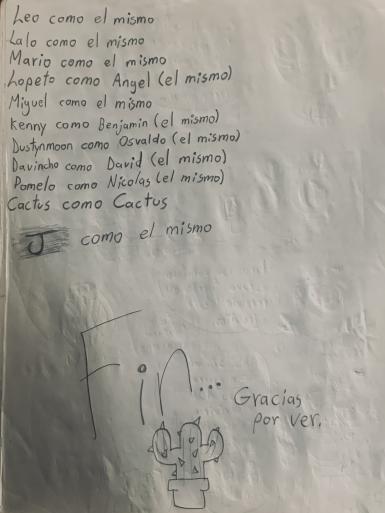 Leo como el mismo
Lalo como el mismo
Mario como el mismo
Lopeto como Angel (el mismo)
Miguel como el mismo
Kenny como Benjamin (el mismo)
Dustynmoon como Osvaldo (el mismo)
Davincho como David (el mismo)
Pomelo como Nicolas (el mismo)
Cactus como Cactus
J como el mismo
Fin...
Gracias
por ver.